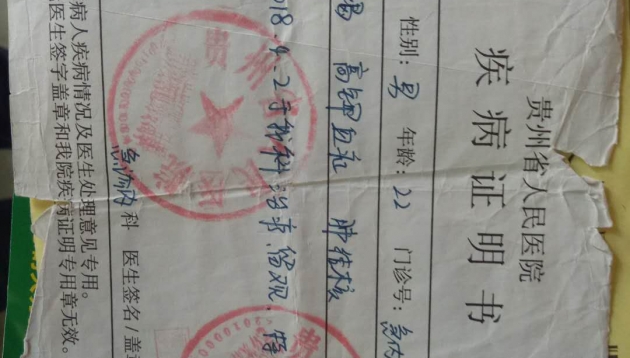 贵州省人民医院
疾病证明书
性别：男 年龄：22 门诊号：急内
高钾血症 肺结核
018.4.2于我科治疗留观，特
急诊内科 医生签名/盖
病人疾病情况及医生处理意见专用。
医生签字盖章和我院疾病证明专用章无效。